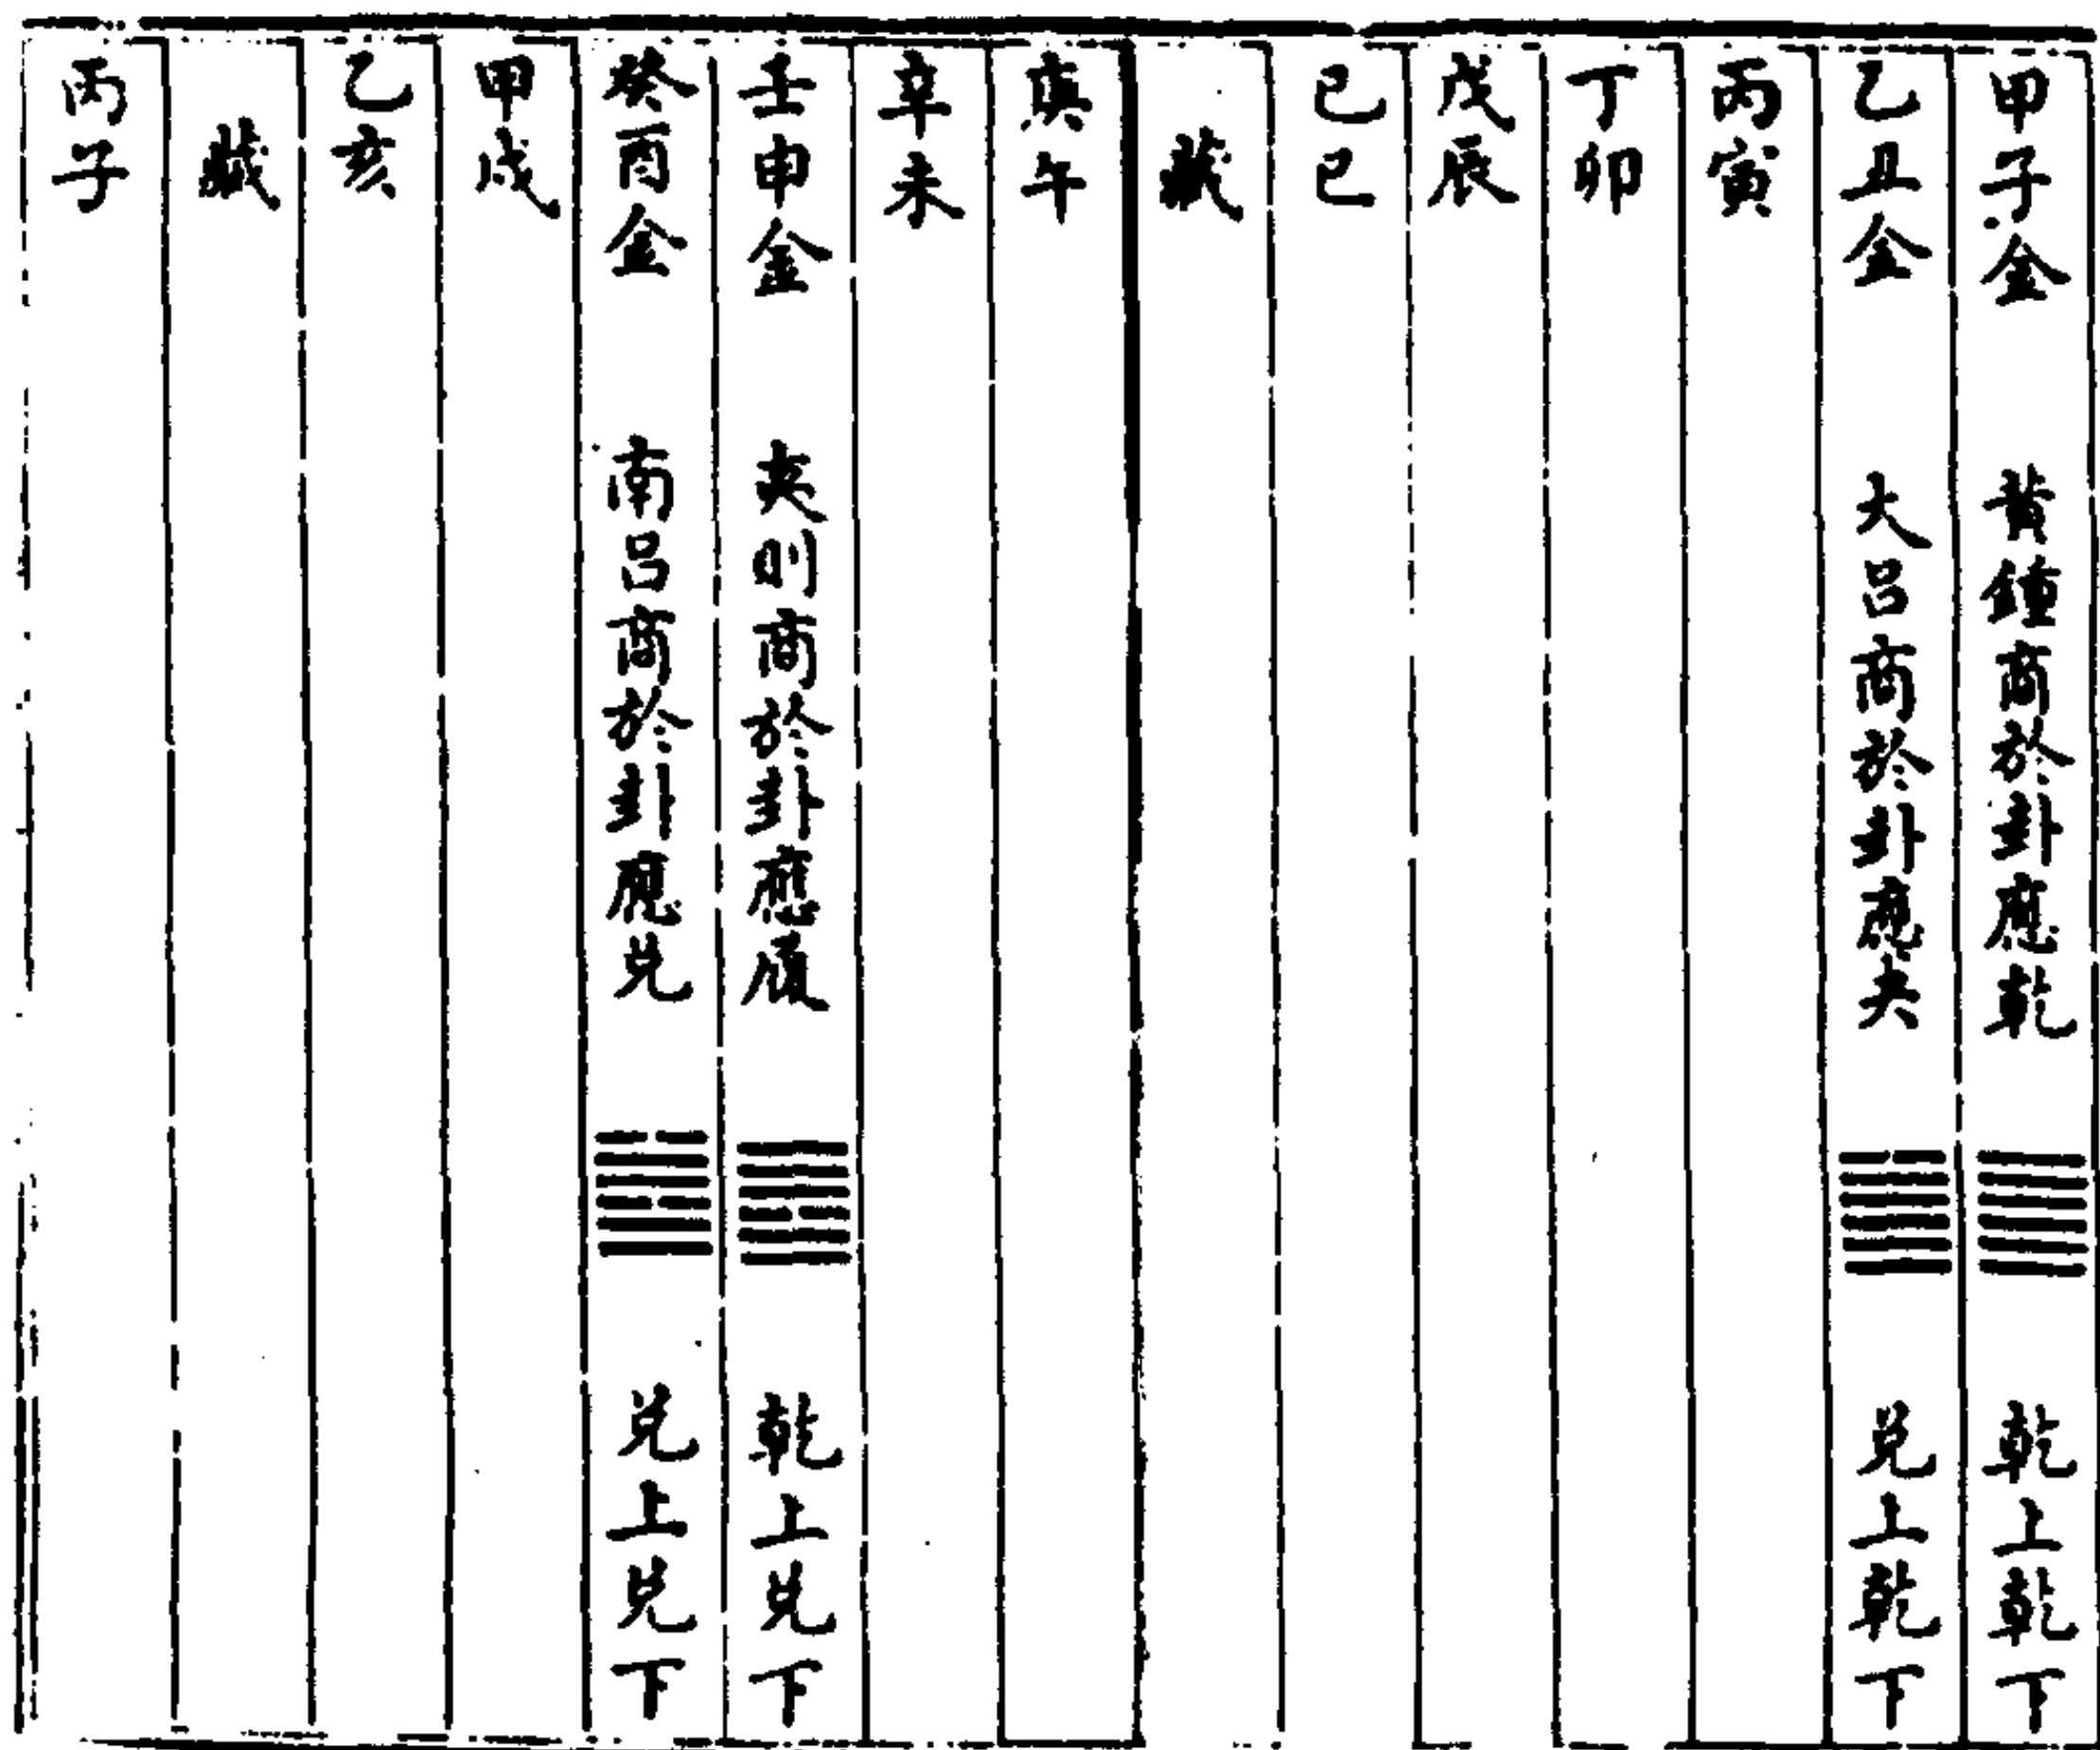 甲子金 黃鐘商於卦應乾 乾上乾下
乙丑金 大呂商於卦應夬 兌上乾下
丙寅
丁卯
戊辰
己巳
藏
庚午
辛未
壬申金 夷則商於卦應履 乾上兌下
癸酉金 南呂商於卦應兌 兌上兌下
甲戌
乙亥
藏
丙子